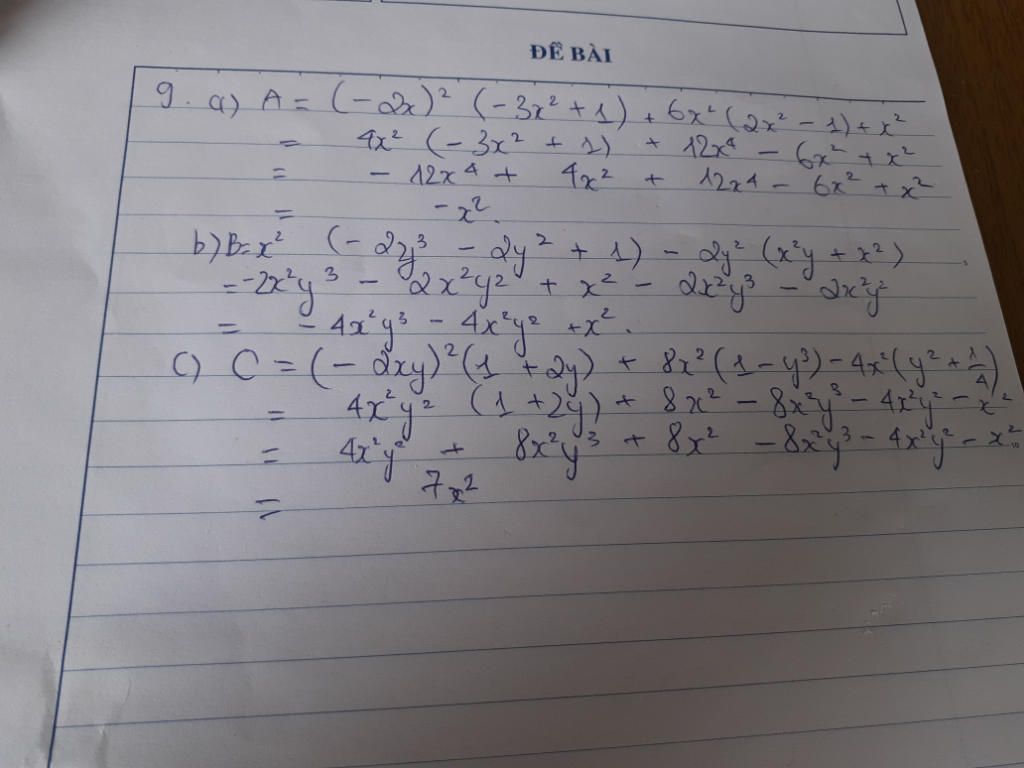 ĐỀ BÀI
9. a) A = (-2x)² (-3x² + 1) + 6x² (2x² - 1) + x²
= 4x² (-3x² + 1) + 12x⁴ - 6x² + x²
= -12x⁴ + 4x² + 12x⁴ - 6x² + x²
= -x².
b) B = x² (-2y³ - 2y² + 1) - 2y² (x²y + x²)
= -2x²y³ - 2x²y² + x² - 2x²y³ - 2x²y²
= -4x²y³ - 4x²y² + x².
C) C = (-2xy)² (1 + 2y) + 8x² (1 - y³) - 4x² (y² + 1/4)
= 4x²y² (1 + 2y) + 8x² - 8x²y³ - 4x²y² - x²
= 4x²y² + 8x²y³ + 8x² - 8x²y³ - 4x²y² - x²
= 7x²